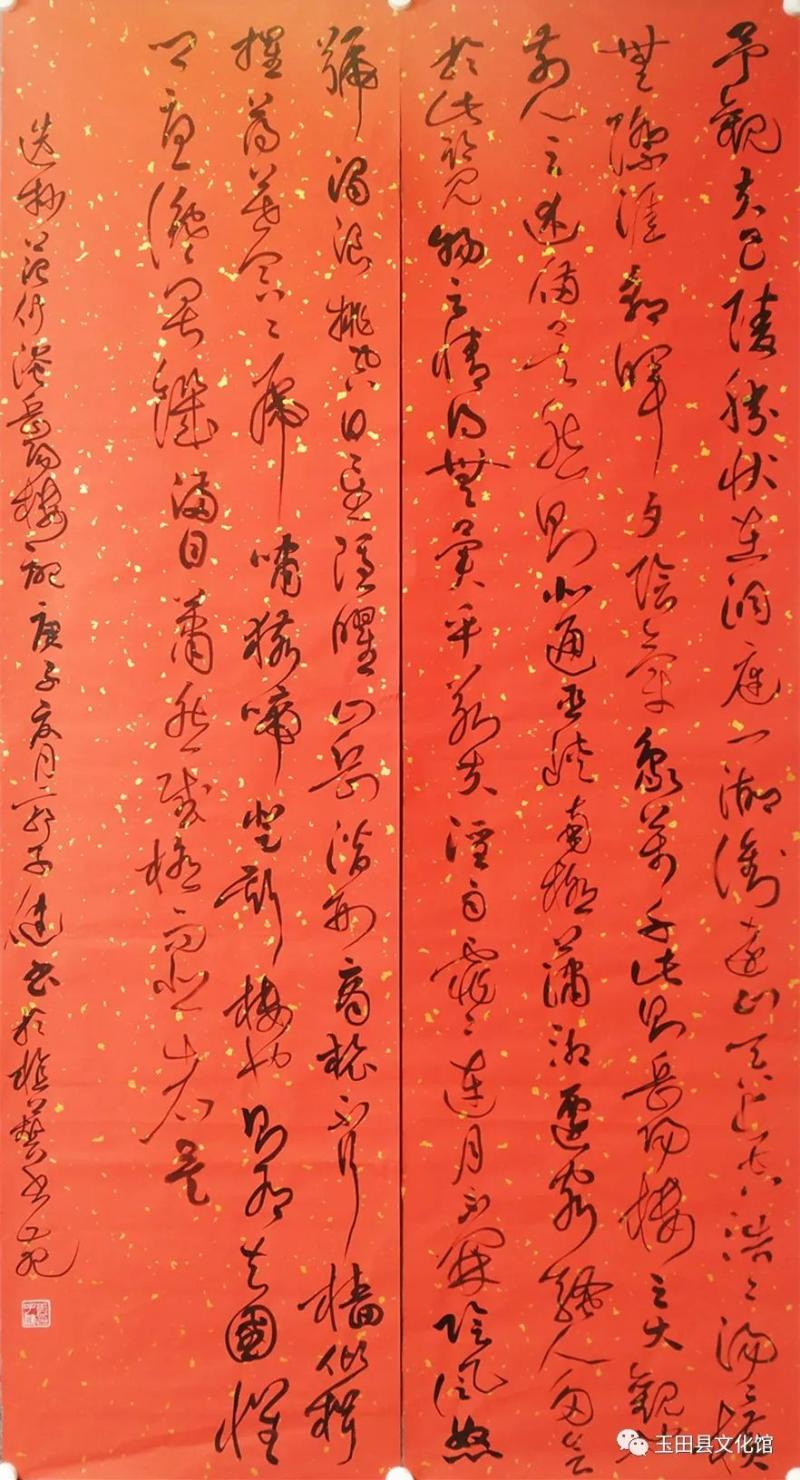 予觀夫巴陵勝狀在洞庭一湖銜遠山吞長江浩々湯々橫
無際涯朝暉夕陰氣象萬千此則岳陽樓之大觀也
前人之述備矣然則北通巫峽南極瀟湘遷客騷人多會
於此覽物之情得無異乎若夫淫雨霏々連月不開陰風怒
號濁浪排空日星隱曜山岳潛形商旅不行檣傾楫
摧薄暮冥々虎嘯猿啼登斯樓也則有去國懷
鄉憂讒畏譏滿目蕭然感極而悲者矣
选抄范仲淹岳阳樓記庚子夏月郭子建书於藝书苑
玉田县文化馆